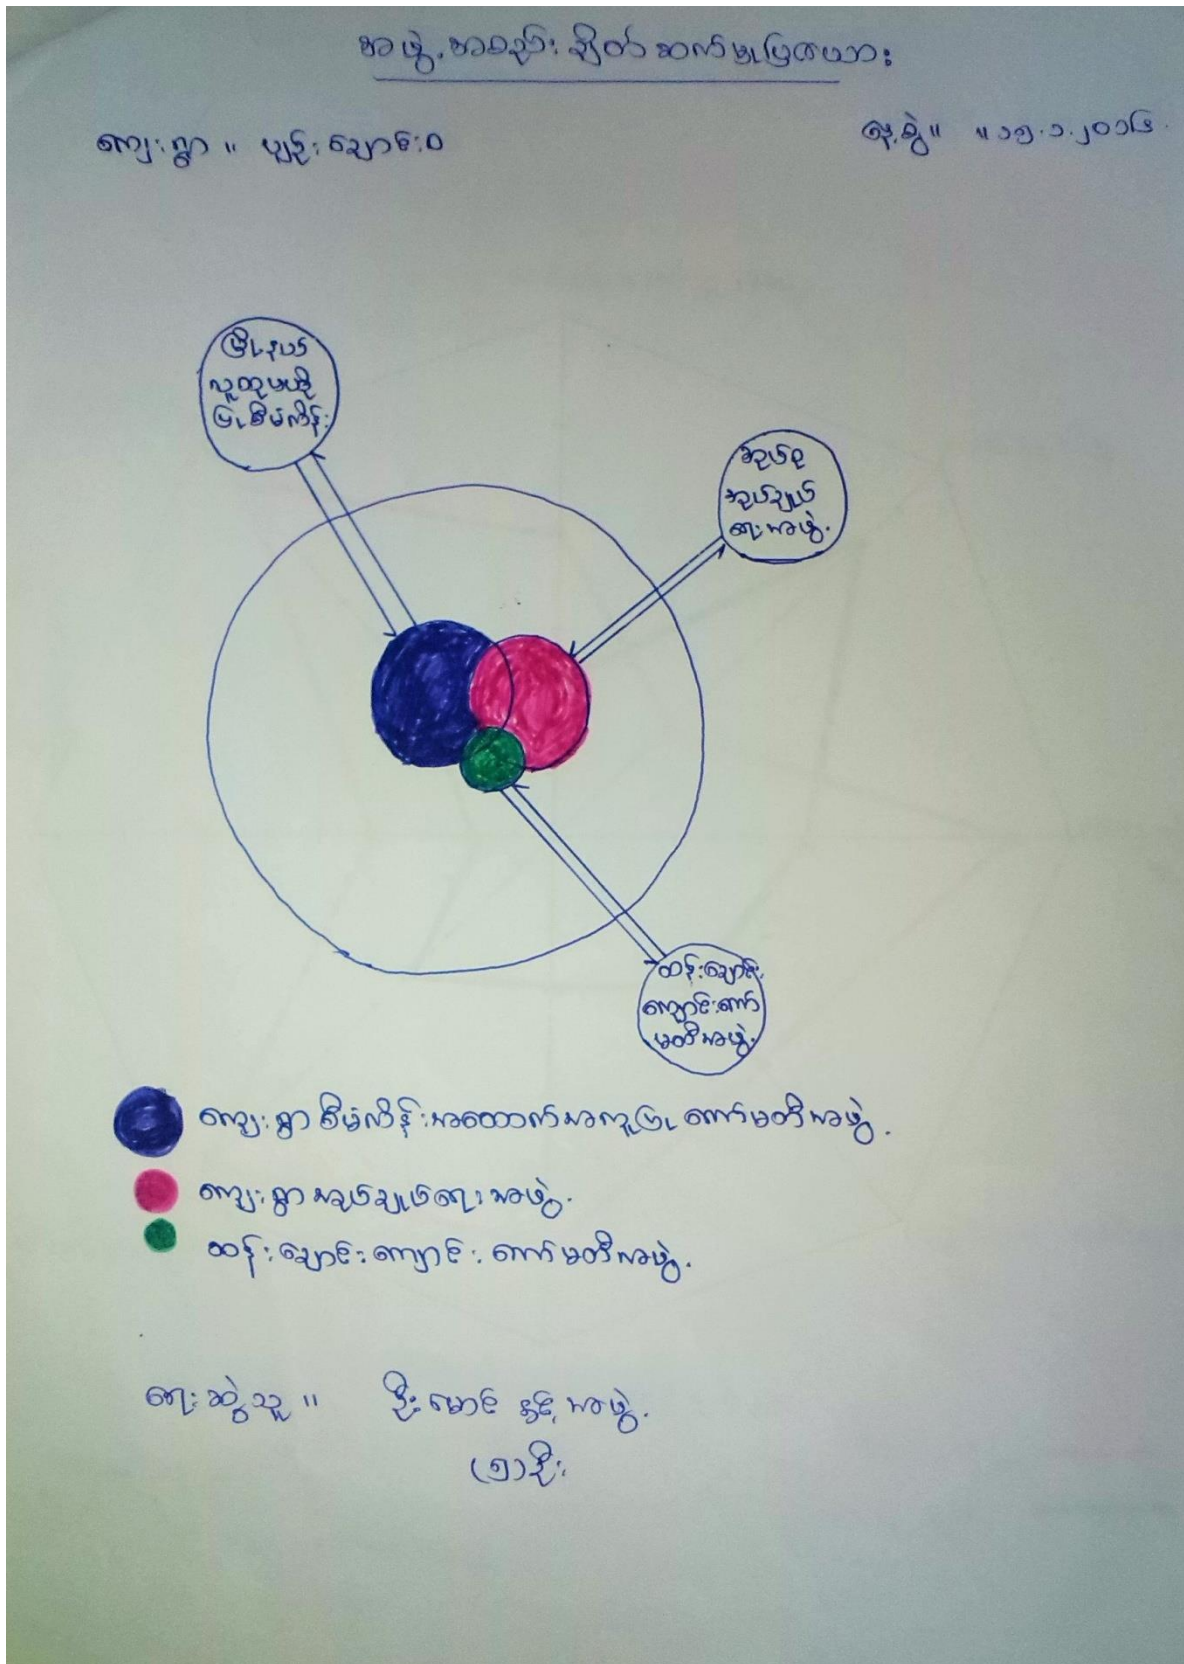 အဖွဲ့အစည်းချိတ်ဆက်မှုပြဇယား
ကျေးရွာ ။ ပျဉ်းချောင်းဝ
နေ့စွဲ။ ။၁၅.၁.၂၀၁၆.
မြို့နယ်
လူထုဗဟို
ပြုစီမံကိန်း
အုပ်စု
အုပ်ချုပ်
ရေးအဖွဲ့.
ထန်းချောင်း
ကျောင်းကော်
မတီအဖွဲ့.
ကျေးရွာစီမံကိန်းအထောက်အကူပြုကော်မတီအဖွဲ့.
ကျေးရွာအုပ်ချုပ်ရေးအဖွဲ့.
ထန်းချောင်းကျောင်းကော်မတီအဖွဲ့.
ရေးဆွဲသူ ။ ဦးမောင် နှင့်အဖွဲ့.
(၅)ဦး